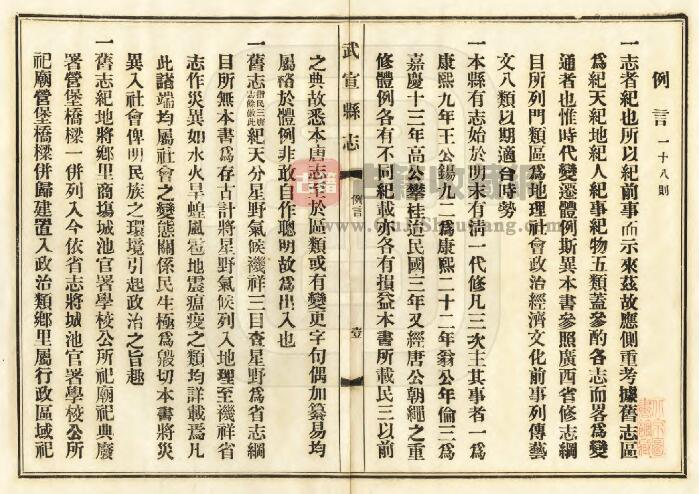 例言 一十八則
一志者紀也所以紀前事而示來茲故應側重考據舊志區
為紀天紀地紀人紀事紀物五類蓋參酌各志而畧為變
通者也惟時代變遷體例斯異本書參照廣西省修志綱
目所列門類區為地理社會政治經濟文化前事列傳藝
文八類以期適合時勢
一本縣有志始於明末有清一代修凡三次主其事者一為
康熙九年王公錫九二為康熙二十二年翁公年倫三為
嘉慶十三年高公攀桂洎民國三年又經唐公朝繩之重
修體例各有不同紀載亦各有損益本書所載民三以前
武宣縣志
例言
壹
之典故悉本唐志至於區類或有變更字句偶加纂易均
屬格於體例非敢自作聰明故為出入也
一舊志指民三唐志餘倣此紀天分星野氣候禨祥三目查星野為省志綱
目所無本書為存古計將星野氣候列入地理至禨祥省
志作災異如水火旱蝗風雹地震瘟疫之類均詳載焉凡
此諸端均屬社會之變態關係民生極為㲄切本書將災
異入社會俾明民族之環境引起政治之旨趣
一舊志紀地將鄉里商塲城池官署學校公所祀廟祀典廢
署營堡橋樑一併列入今依省志將城池官署學校公所
祀廟營堡橋樑併歸建置入政治類鄉里屬行政區域祀